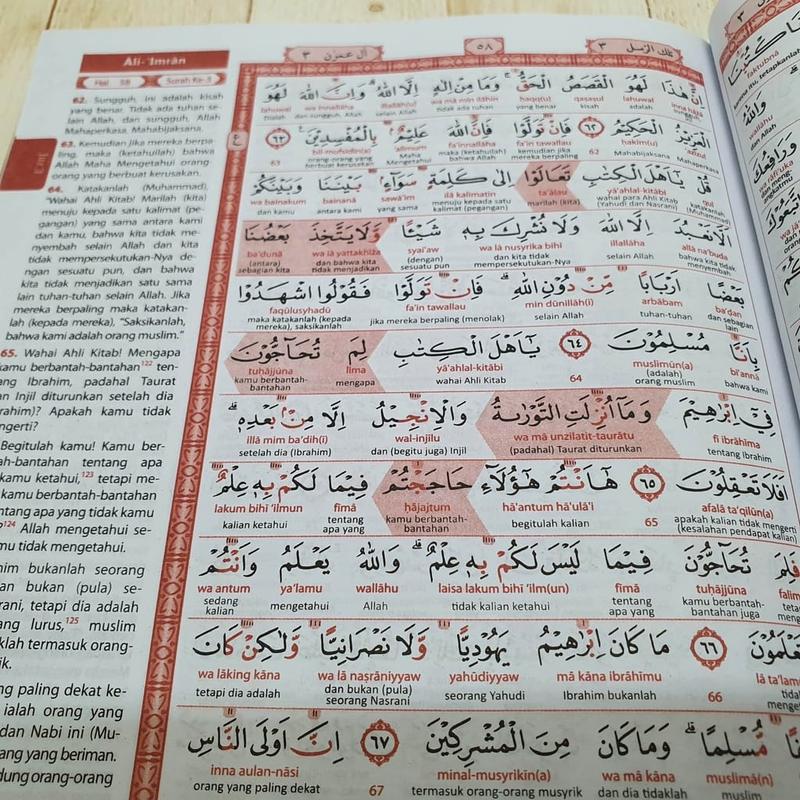 Āli-'Imrân
Hal 58
Surah Ke-3
62. Sungguh, ini adalah kisah
yang benar. Tidak ada tuhan se-
lain Allah, dan sungguh, Allah
Mahaperkasa, Mahabijaksana.
63. Kemudian jika mereka berpa-
ling, maka (ketahuilah) bahwa
Allah Maha Mengetahui orang-
orang yang berbuat kerusakan.
64. Katakanlah (Muhammad),
"Wahai Ahli Kitab! Marilah (kita)
menuju kepada satu kalimat (pe-
gangan) yang sama antara kami
dan kamu, bahwa kita tidak me-
nyembah selain Allah dan kita
tidak mempersekutukan-Nya de-
ngan sesuatu pun, dan bahwa
kita tidak menjadikan satu sama
lain tuhan-tuhan selain Allah. Jika
mereka berpaling maka katakan-
lah (kepada mereka), "Saksikanlah,
bahwa kami adalah orang muslim."
65. Wahai Ahli Kitab! Mengapa
kamu berbantah-bantahan122 ten-
ng Ibrahim, padahal Taurat
n Injil diturunkan setelah dia
rahim)? Apakah kamu tidak
ngerti?
Begitulah kamu! Kamu ber-
ah-bantahan tentang apa
kamu ketahui,123 tetapi me-
kamu berbantah-bantahan
ntang apa yang tidak kamu
124 Allah mengetahui se-
mu tidak mengetahui.
him bukanlah seorang
an bukan (pula) se-
rani, tetapi dia adalah
ng lurus,125 muslim
klah termasuk orang-
ik.
ng paling dekat ke-
ialah orang yang
dan Nabi ini (Mu-
ang yang beriman.
dung orang-orang
آل عمرٰن ٣
٥٨
تلك الرسل ٣
اِنَّ هٰذَا لَهُوَ الْقَصَصُ الْحَقُّ ۚ وَمَا مِنْ اِلٰهٍ اِلَّا اللّٰهُ ۗ وَاِنَّ اللّٰهَ لَهُوَ
inna hāżā lahuwal qaṣaṣul ḥaqq(u) wa mā min ilāhin illallāh(u) wa innallāha lahuwal
sungguh ini adalah kisah yang benar tidak ada tuhan selain Allah dan sungguh Allah
الْعَزِيْزُ الْحَكِيْمُ ٦٢ فَاِنْ تَوَلَّوْا فَاِنَّ اللّٰهَ عَلِيْمٌ ۢبِالْمُفْسِدِيْنَ ࣖ ٦٣
'azīzul ḥakīm(u) fa'in tawallau fa'innallāha 'alīmum bil-mufsidīn(a)
Mahaperkasa Mahabijaksana 62 kemudian jika mereka berpaling maka (ketahuilah) bahwa Allah Maha Mengetahui orang-orang yang berbuat kerusakan 63
قُلْ يٰٓاَهْلَ الْكِتٰبِ تَعَالَوْا اِلٰى كَلِمَةٍ سَوَاۤءٍۢ بَيْنَنَا وَبَيْنَكُمْ
qul yā'ahlal-kitābi ta'ālau ilā kalimatin sawā'im bainanā wa bainakum
katakanlah (Muhammad) wahai para Ahli Kitab (Yahudi dan Nasrani) marilah (kita) menuju kepada satu kalimat (pegangan) yang sama antara kami dan kamu
اَلَّا نَعْبُدَ اِلَّا اللّٰهَ وَلَا نُشْرِكَ بِهٖ شَيْـًٔا وَّلَا يَتَّخِذَ بَعْضُنَا
allā na'buda illallāha wa lā nusyrika bihī syai'aw wa lā yattakhiża ba'ḍunā
bahwa kita tidak menyembah selain Allah dan kita tidak mempersekutukan-Nya (dengan) sesuatu pun dan bahwa kita tidak menjadikan (antara) sebagian kita
بَعْضًا اَرْبَابًا مِّنْ دُوْنِ اللّٰهِ ۗ فَاِنْ تَوَلَّوْا فَقُوْلُوا اشْهَدُوْا
ba'ḍan arbābam min dūnillāh(i) fa'in tawallau faqūlusyhadū
dan sebagian lain tuhan-tuhan selain Allah jika mereka berpaling (menolak) maka katakanlah (kepada mereka), saksikanlah
بِاَنَّا مُسْلِمُوْنَ ٦٤ يٰٓاَهْلَ الْكِتٰبِ لِمَ تُحَاۤجُّوْنَ
bi'annā muslimūn(a) yā'ahlal-kitābi lima tuḥājjūna
bahwa kami (adalah) orang muslim 64 wahai Ahli Kitab mengapa kamu berbantah-bantahan
فِيْٓ اِبْرٰهِيْمَ وَمَآ اُنْزِلَتِ التَّوْرٰىةُ وَالْاِنْجِيْلُ اِلَّا مِنْۢ بَعْدِهٖ ۗ
fī ibrāhīma wa mā unzilatit-taurātu wal-injīlu illā mim ba'dih(ī)
tentang Ibrahim (padahal) Taurat diturunkan dan (begitu juga) Injil setelah dia (Ibrahim)
اَفَلَا تَعْقِلُوْنَ ٦٥ هٰٓاَنْتُمْ هٰٓؤُلَاۤءِ حَاجَجْتُمْ فِيْمَا لَكُمْ بِهٖ عِلْمٌ
afalā ta'qilūn(a) hā'antum hā'ulā'i ḥājajtum fīmā lakum bihī 'ilmun
apakah kalian tidak mengerti (kesalahan pendapat kalian) 65 begitulah kalian kamu berbantah-bantahan tentang apa yang kalian ketahui
فَلِمَ تُحَاۤجُّوْنَ فِيْمَا لَيْسَ لَكُمْ بِهٖ عِلْمٌ ۗ وَاللّٰهُ يَعْلَمُ وَاَنْتُمْ
tuḥājjūna fīmā laisa lakum bihī 'ilm(un) wallāhu ya'lamu wa antum
kamu berbantah-bantahan juga tentang apa yang tidak kalian ketahui Allah mengetahui sedang kalian
تَعْلَمُوْنَ ٦٦ مَا كَانَ اِبْرٰهِيْمُ يَهُوْدِيًّا وَّلَا نَصْرَانِيًّا وَّلٰكِنْ كَانَ
mā kāna ibrāhīmu yahūdiyyaw wa lā naṣrāniyyaw wa lāking kāna
66 Ibrahim bukanlah seorang Yahudi dan bukan (pula) seorang Nasrani tetapi dia adalah
مُّسْلِمًا ۗ وَمَا كَانَ مِنَ الْمُشْرِكِيْنَ ٦٧ اِنَّ اَوْلَى النَّاسِ
muslimā(n) wa mā kāna minal-musyrikīn(a) inna aulan-nāsi
muslim dan dia tidaklah termasuk orang-orang musyrik 67 orang yang paling dekat